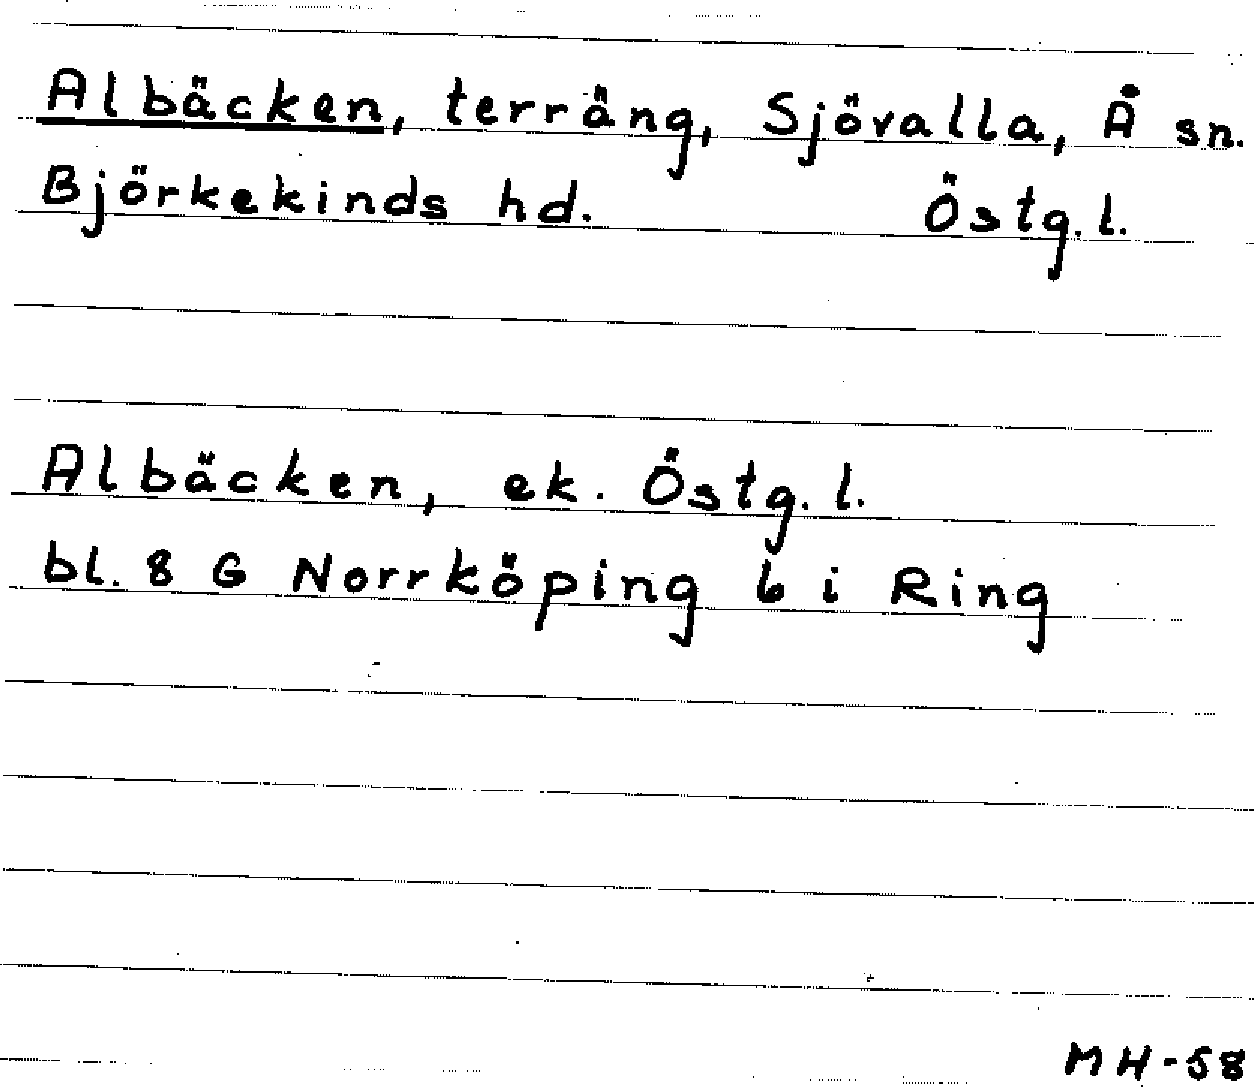 Albäcken, terräng, Sjövalla, Å sn.
Björkekinds hd. Östg. l.
Albäcken, ek. Östg. l.
bl. 8 G Norrköping 6 i Ring
MH-58